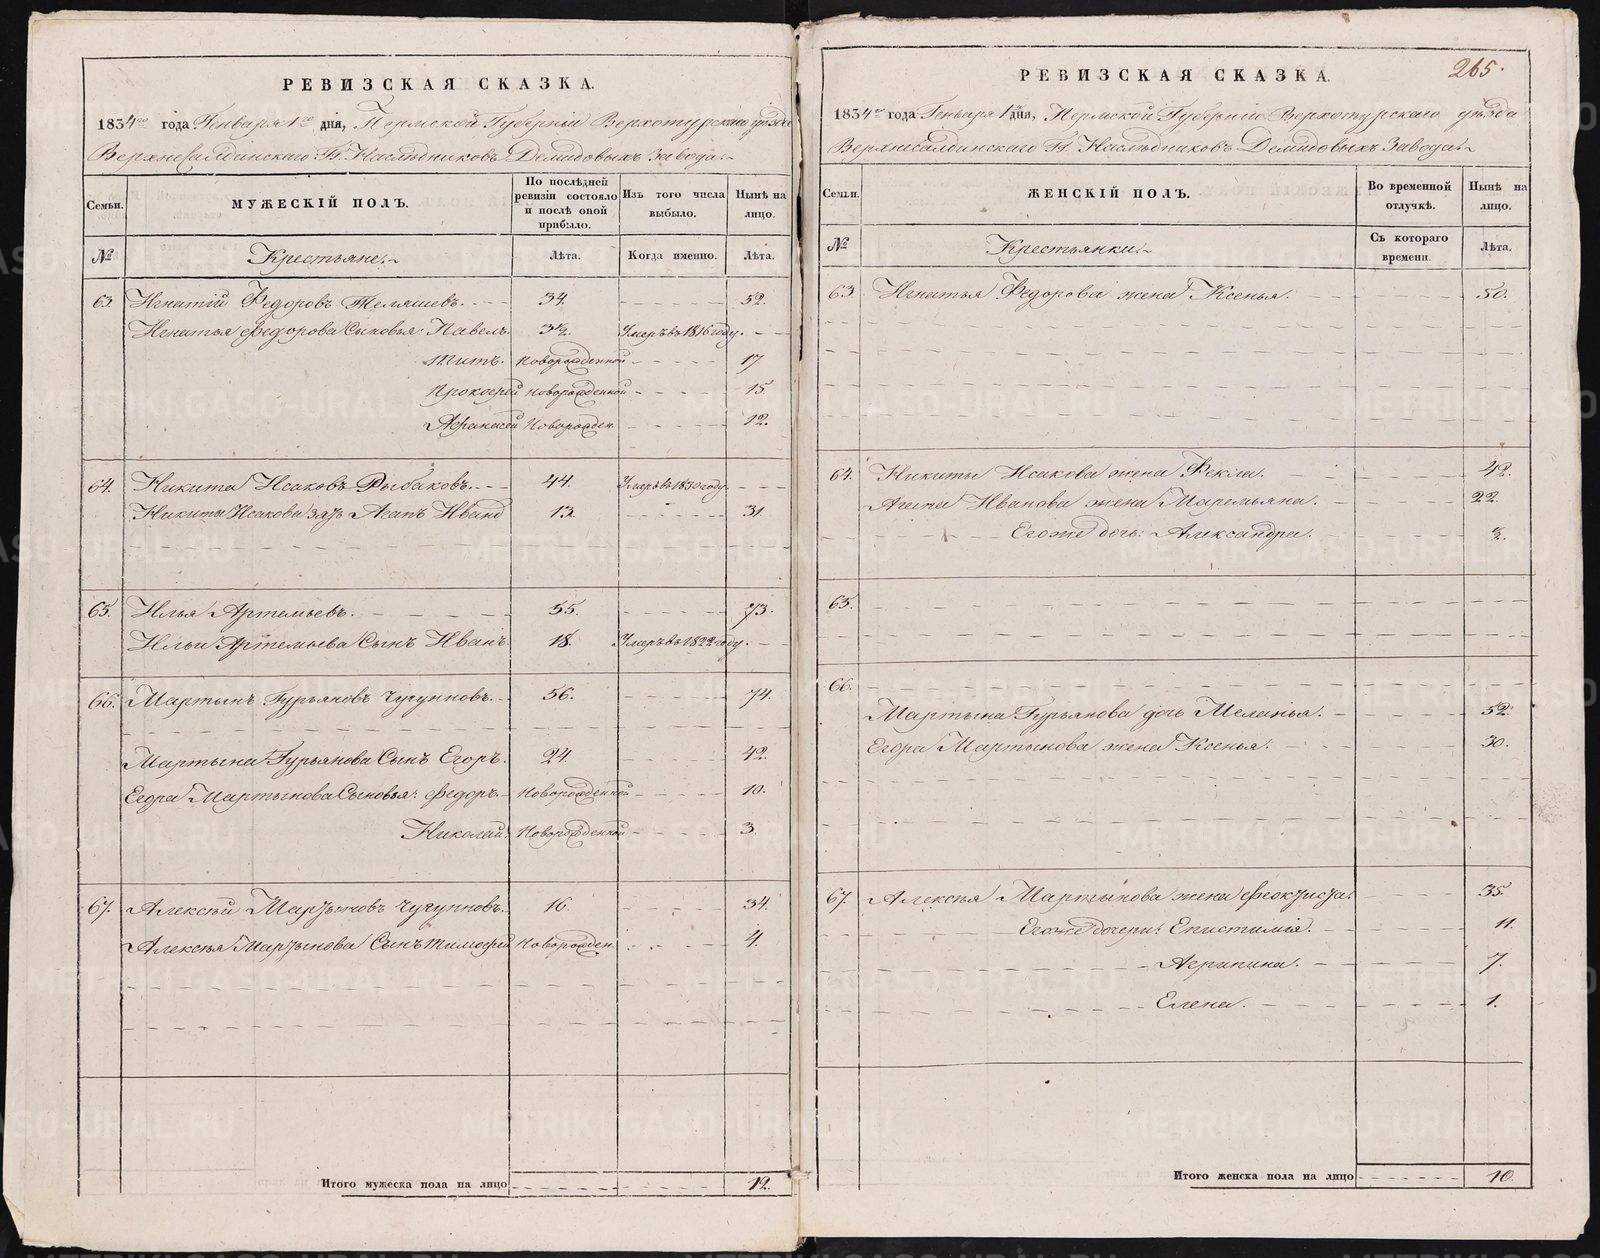 РЕВИЗСКАЯ СКАЗКА.
1834го года Генваря 1го дня, Пермской Губернiи Верхотурскаго уезда
Верхнесалдинскаго Гг. Наследниковъ Демидовыхъ Завода.
Семьи.
МУЖЕСКIЙ ПОЛЪ.
По послѣдней ревизiи состояло и послѣ оной прибыло.
Изъ того числа выбыло.
Нынѣ на лицо.
№
Крестьяне.
Лѣта.
Когда именно.
Лѣта.
63. Игнатiй Федоровъ Теляшевъ. 34. 52.
Игнатья Федорова Сыновья: Павелъ. 3½. Умеръ въ 1816 году.
Титъ. Новорожденной 17
Прокофей Новорожденной 15.
Афанасей Новорожден. 12.
64. Никита Исаковъ Рыбаковъ. 44. Умеръ въ 1830 году
Никиты Исакова зять Агапъ Иванов 13. 31.
65. Илья Артемьевъ. 55. 73.
Ильи Артемьева Сынъ Иванъ. 18. Умеръ въ 1822 году.
66. Мартынъ Гурьяновъ Чугуновъ. 56. 74.
Мартына Гурьянова Сынъ Егоръ. 24. 42.
Егора Мартынова Сыновья: Федоръ. Новорожденной 10.
Николай: Новорожденной 3.
67. Алексѣй Мартыновъ Чугуновъ. 16. 34.
Алексѣя Мартынова Сынъ Тимофей Новорожден. 4.
Итого мужеска пола на лицо 12.
265.
РЕВИЗСКАЯ СКАЗКА.
1834го года Генваря 1го дня, Пермской Губернiи Верхотурскаго уѣзда
Верхнесалдинскаго Гг. Наслѣдниковъ Демидовыхъ Завода.
Семьи.
ЖЕНСКIЙ ПОЛЪ.
Во временной отлучкѣ.
Нынѣ на лицо.
№
Крестьянки.
Съ котораго времени.
Лѣта.
63. Игнатья Федорова жена Ксенья. 50.
64. Никиты Исакова жена Фекла. 42.
Агапа Иванова жена Маремьяна. 22.
Его же дочь: Александра. ½.
65.
66.
Мартына Гурьянова дочь Меланья. 52.
Егора Мартынова жена Ксенья. 30.
67. Алексѣя Мартынова жена Феоктиста. 35.
Его же дочери: Епистимiя. 11.
Агрипина. 7.
Елена. 1.
Итого женска пола на лицо 10.
METRIKI.GASO-URAL.RU